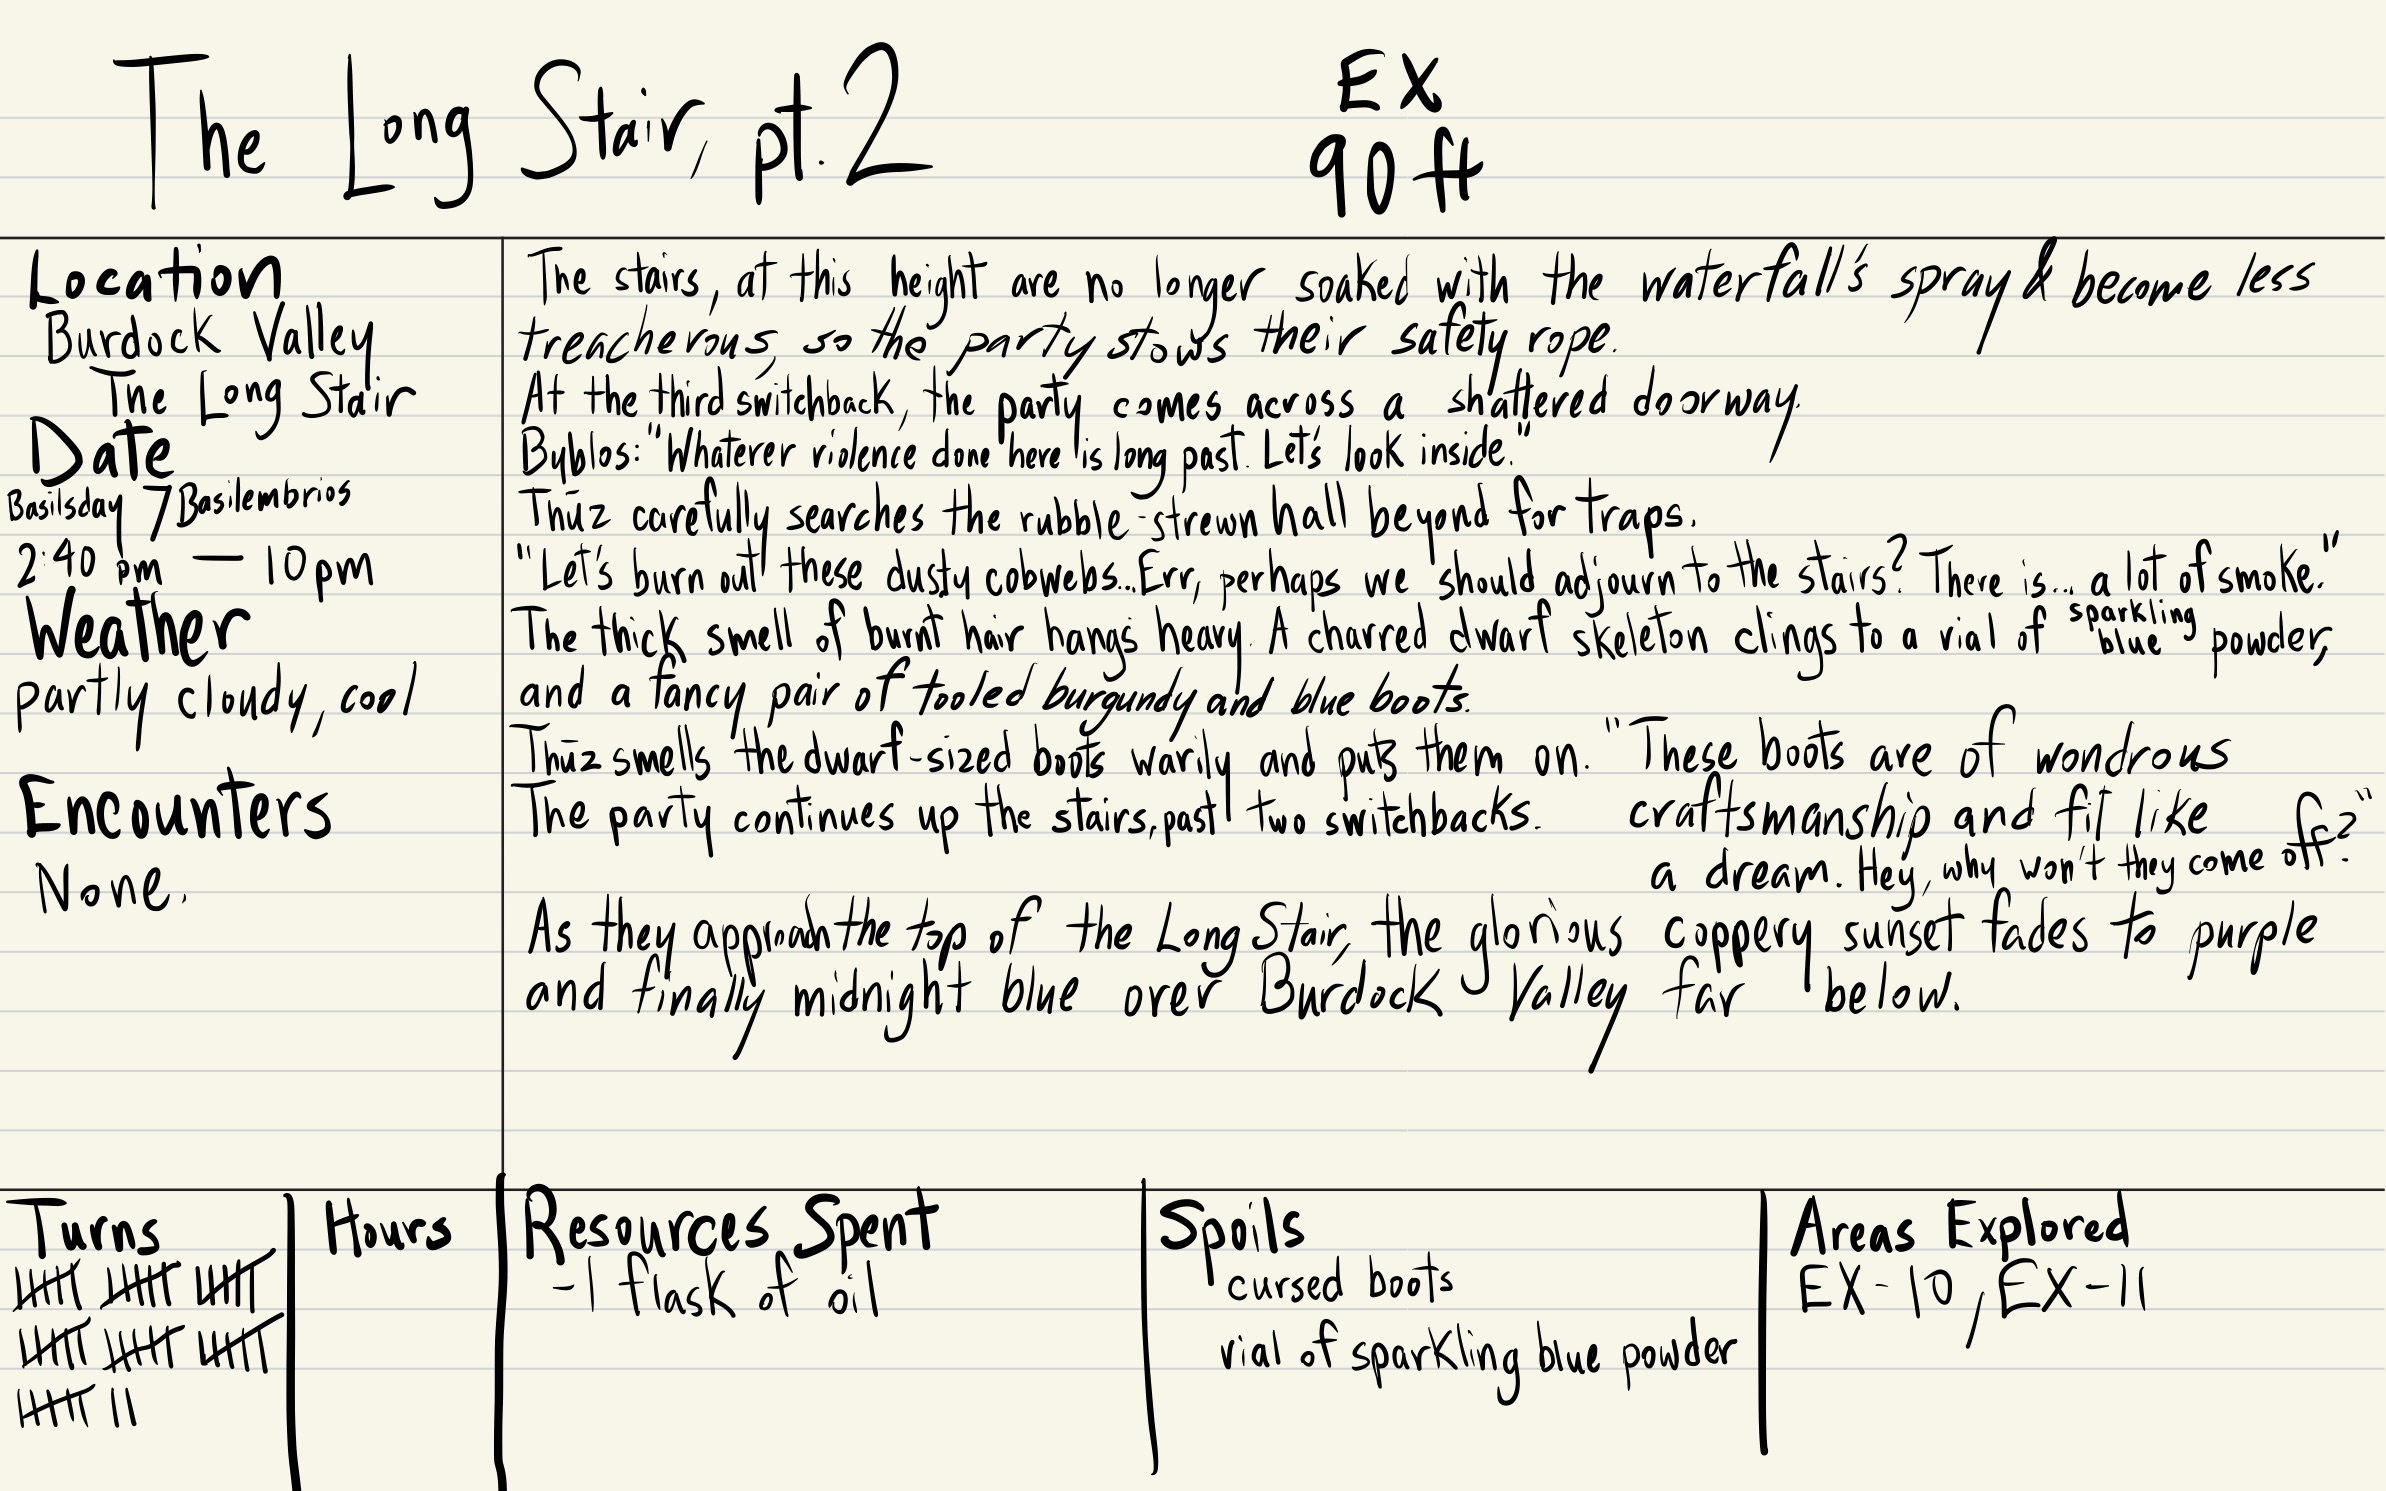 The Long Stair, pt. 2
EX
90 ft
Location
Burdock Valley
The Long Stair
Date
Basilsday 7 Basilembrios
2:40 pm — 10pm
Weather
partly cloudy, cool
Encounters
None.
The stairs, at this height are no longer soaked with the waterfall's spray & become less
treacherous, so the party stows their safety rope.
At the third switchback, the party comes across a shattered doorway.
Byblos: "Whatever violence done here is long past. Let's look inside."
Thūz carefully searches the rubble-strewn hall beyond for traps.
"Let's burn out these dusty cobwebs...Err, perhaps we should adjourn to the stairs? There is... a lot of smoke."
The thick smell of burnt hair hangs heavy. A charred dwarf skeleton clings to a vial of sparkling blue powder,
and a fancy pair of tooled burgundy and blue boots.
Thūz smells the dwarf-sized boots warily and puts them on. "These boots are of wondrous
craftsmanship and fit like
a dream. Hey, why won't they come off?"
The party continues up the stairs, past two switchbacks.
As they approach the top of the Long Stair, the glorious coppery sunset fades to purple
and finally midnight blue over Burdock Valley far below.
Turns
Hours
Resources Spent
-1 flask of oil
Spoils
cursed boots
vial of sparkling blue powder
Areas Explored
EX-10, EX-11